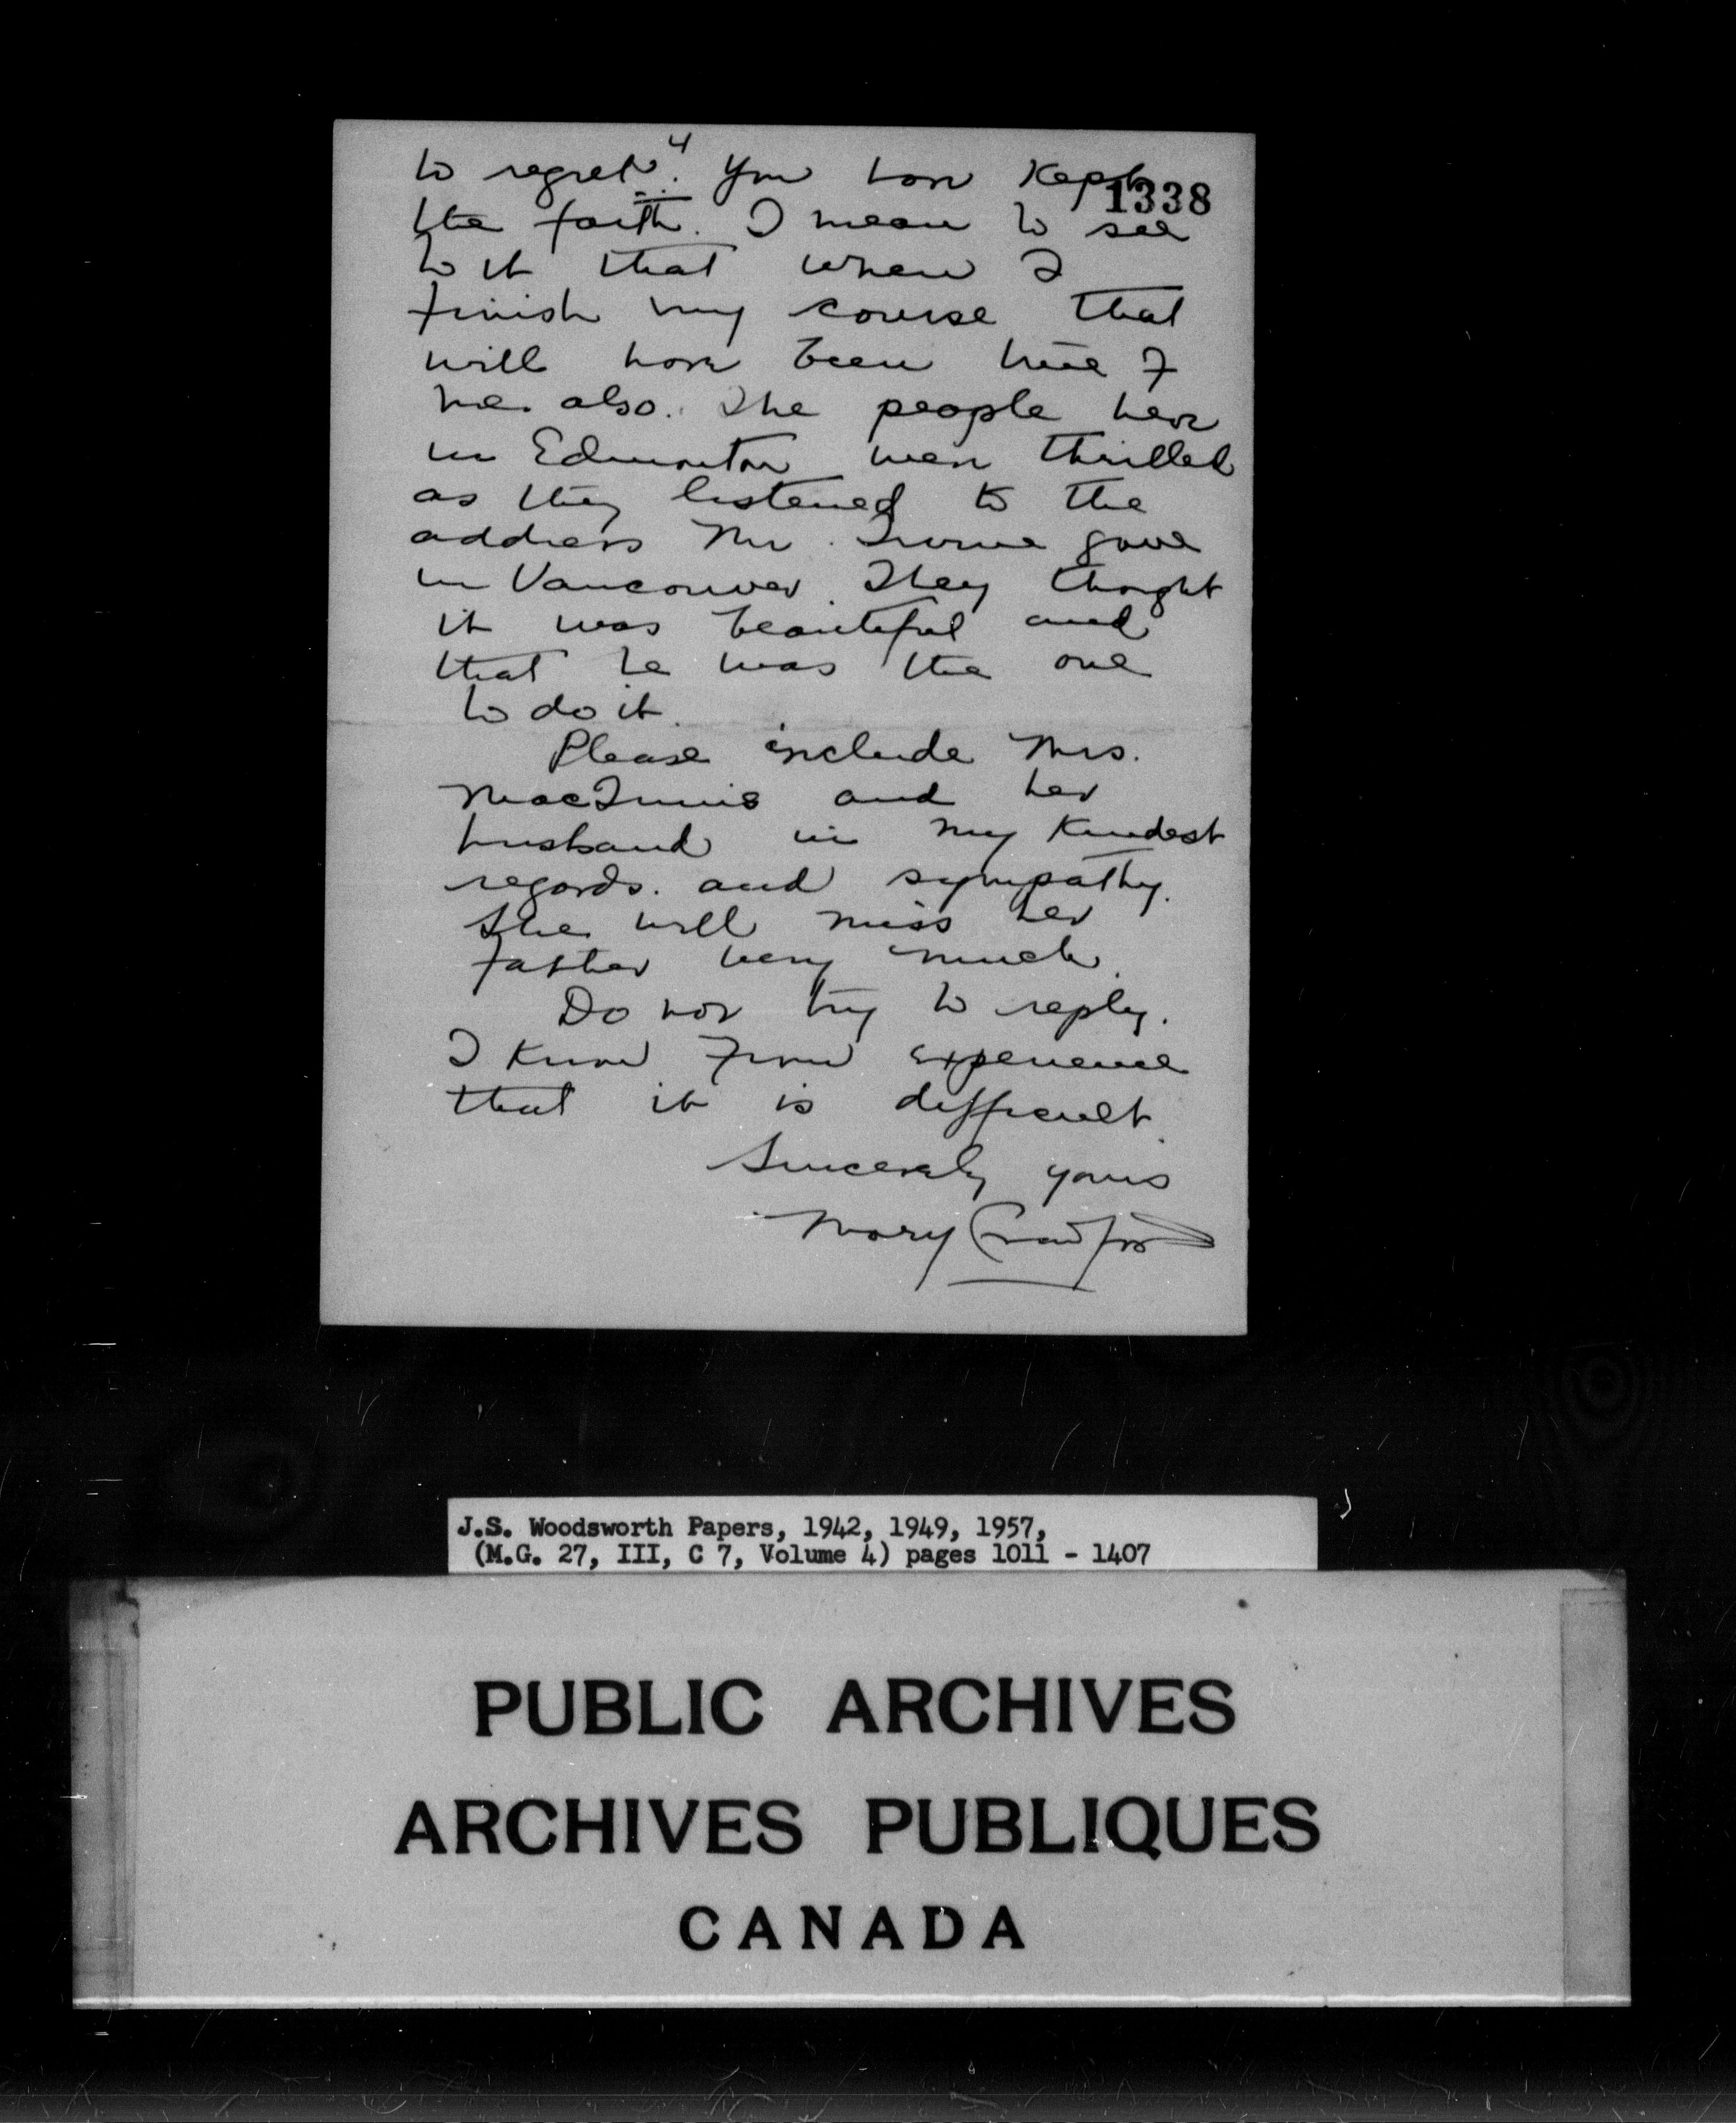 4
to regret. You have Kept
1338
the faith. I mean to see
to it that when I
finish my course that
will have been true of
me also. The people here
in Edmonton were thrilled
as they listened to the
address Mr. Irvine gave
in Vancouver. They thought
it was beautiful and
that he was the one
to do it.
Please include Mrs.
MacInnis and her
husband in my Kindest
regards. and sympathy.
She will miss her
father very much.
Do not try to reply.
I Know from experience
that it is difficult.
Sincerely yours
Mary Crawford
J.S. Woodsworth Papers, 1942, 1949, 1957,
(M.G. 27, III, C 7, Volume 4) pages 1011 - 1407
PUBLIC ARCHIVES
ARCHIVES PUBLIQUES
CANADA